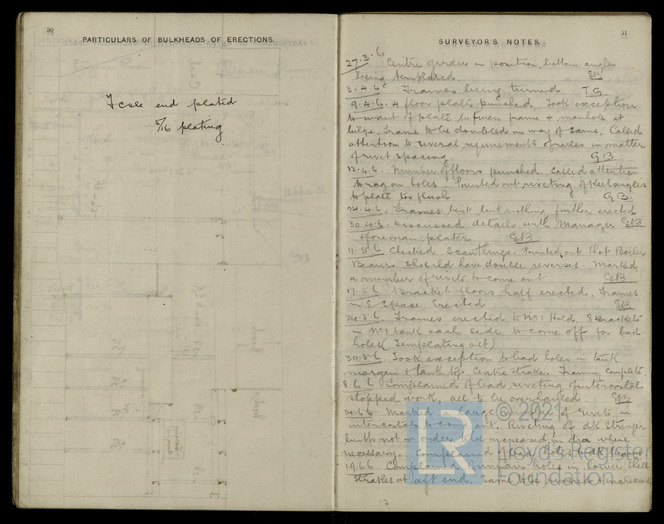 PARTICULARS OF BULKHEADS OF ERECTIONS.
Fcsle end plated
5/16 plating
SURVEYOR'S NOTES
27.3.6 Centre girders in position, bottom angles
being templated. GB
3.4.6 Frames being turned T.G.
9.4.6. 4 floor plates punched. Took exception
to want of plate between frame & manhole at
bilge. Frame to be doubled in way of same. Called
attention to several requirements of rules in matter
of rivet spacing GB
12.4.6. Number of floors punched. Called attention
to rag on holes. Pointed out riveting of Keel angles
to plate too flush GB.
24.4.6. Frames but nothing further erected
30.4.6. Discussed details with Manager GB
& foreman plater GB
11.5.6 Checked Scantlings. Pointed out that Boiler
Bearers should have double reverses. Marked
a number of rivets to come out GB
17.5.6 Bracket floors half erected. Frames
in E Space Erected GB
24.5.6. Frames erected to No 1 Hold. 8 brackets
in No 1 tank each side to come off for bad
holes (Templating out)
30.5.6. Took exception to bad holes in tank
margin & tank top Centre strake. Framing Complete.
8.6.6 Complained of bad riveting of intercostal
stopped work, all to be overhauled GB
14.6.6 Marked a large of rivets in
intercostals to come out. Riveting of dk Stringer
butts not in order to be increased in dia where
necessary.
19.6.6 holes in lower shell
strakes at aft end.
© 2021
LR
Lloyd's Register
Foundation